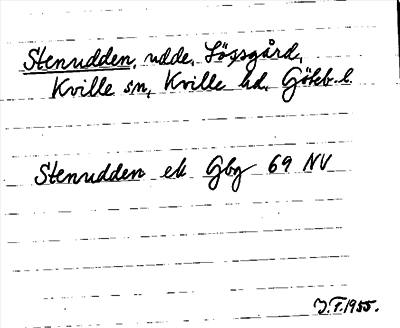 Stenudden, udde, Lögsgård,
Kville sn, Kville hd, Göteb. l.
Stenudden ek Gbg 69 NV
J.T. 1955.